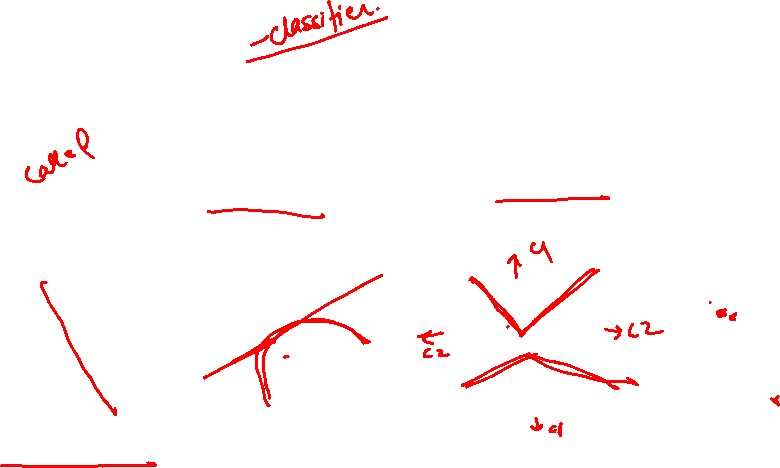 -classifier.
↑ C1
← C2
→ C2
↓ C1